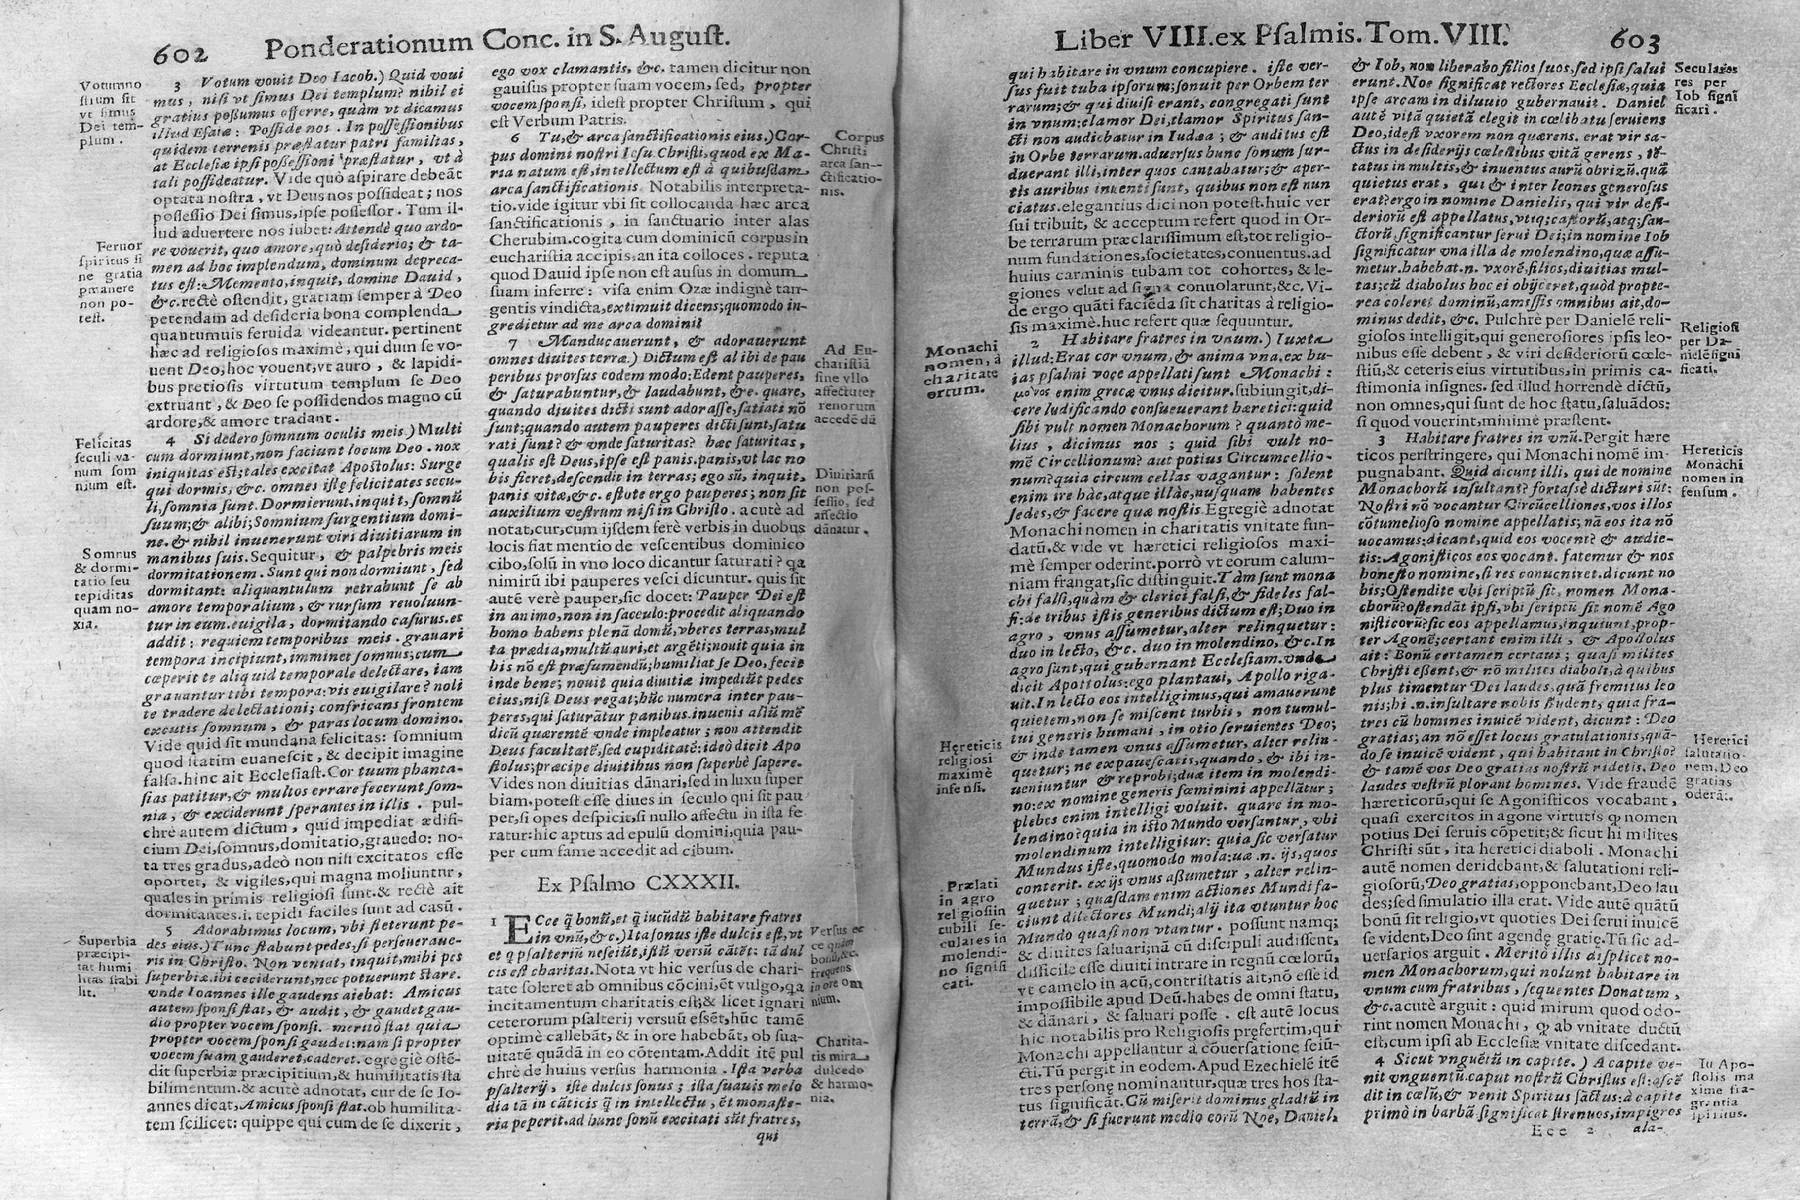 602 Ponderationum Conc. in S. August.
Votumno
strum sit
vt simus
Dei tem-
plum.
3 Votum vouit Deo Iacob.) Quid voui
mus, nisi vt simus Dei templum? nihil ei
gratius possumus offerre, quàm vt dicamus
illud Esaiæ: Posside nos. In possessionibus
quidem terrenis præstatur patri familias,
at Ecclesiæ ipsi possessioni præstatur, vt à
tali possideatur. Vide quò aspirare debeāt
optata nostra, vt Deus nos possideat; nos
possessio Dei simus, ipse possessor. Tum il-
lud aduertere nos iubet: Attende quo ardo-
re vouerit, quo amore, quò desiderio; & ta-
men ad hoc implendum, dominum depreca-
tus est: Memento, inquit, domine Dauid,
&c. rectè ostendit, gratiam semper à Deo
petendam ad desideria bona complenda
quantumuis feruida videantur. pertinent
hæc ad religiosos maximè, qui dum se vo-
uent Deo, hoc vouent, vt auro, & lapidi-
bus pretiosis virtutum templum se Deo
extruant, & Deo se possidendos magno cū
ardore, & amore tradant.
Feruor
spiritus si
ne gratia
præanere
non po-
test.
4 Si dedero somnum oculis meis.) Multi
cum dormiunt, non faciunt locum Deo. nox
iniquitas est; tales excitat Apostolus: Surge
qui dormis, &c. omnes istę felicitates sęcu-
li, somnia sunt. Dormierunt, inquit, somnū
suum; & alibi; Somnium surgentium domi-
ne. & nihil inuenerunt viri diuitiarum in
manibus suis. Sequitur, & palpebris meis
dormitationem. Sunt qui non dormiunt, sed
dormitant: aliquantulum retrahunt se ab
amore temporalium, & rursum reuoluun-
tur in eum. euigila, dormitando casurus. es
addit: requiem temporibus meis. grauari
tempora incipiunt, imminet somnus; cum
cœperit te aliquid temporale delectare, iam
grauantur tibi tempora: vis euigilare? noli
te tradere delectationi; confricans frontem
excutis somnum, & paras locum domino.
Vide quid sit mundana felicitas: somnium
quod statim euanescit, & decipit imagine
falsa. hinc ait Ecclesiast. Cor tuum phanta-
sias patitur, & multos errare fecerunt som-
nia, & exciderunt sperantes in illis. pul-
chrè autem dictum, quid impediat ædifi-
cium Dei, somnus, domitatio, grauedo: no-
ta tres gradus, adeò non nisi excitatos esse
oportet, & vigiles, qui magna moliuntur,
quales in primis religiosi sunt. & rectè ait
dormitantes. i. tepidi faciles sunt ad casū.
Felicitas
seculi va-
num som
nium est.
Somnus
& dormi-
tatio seu
tepiditas
quam no-
xia.
5 Adorabimus locum, vbi steterunt pe-
des eius.) Tunc stabunt pedes, si perseueraue-
ris in Christo. Non veniat, inquit, mihi pes
superbiæ. ibi ceciderunt, nec potuerunt stare.
vnde Ioannes ille gaudens aiebat: Amicus
autem sponsi stat, & audit, & gaudet gau-
dio propter vocem sponsi. meritò stat quia
propter vocem sponsi gaudet: nam si propter
vocem suam gauderet, caderet. egregiè ostē-
dit superbiæ præcipitium, & humilitatis sta
bilimentum. & acutè adnotat, cur de se Io-
annes dicat, Amicus sponsi stat. ob humilita-
tem scilicet: quippe qui cum de se dixerit,
Superbia
præcipi-
tat humi
litas stabi
lit.
ego vox clamantis, &c. tamen dicitur non
gauisus propter suam vocem, sed, propter
vocem sponsi, idest propter Christum, qui
est Verbum Patris.
6 Tu, & arca sanctificationis eius.) Cor-
pus domini nostri Iesu Christi, quod ex Ma-
ria natum est, intellectum est à quibusdam
arca sanctificationis. Notabilis interpreta-
tio. vide igitur vbi sit collocanda hæc arca
sanctificationis, in sanctuario inter alas
Cherubim. cogita cum dominicū corpus in
eucharistia accipis, an ita colloces. reputa
quod Dauid ipse non est ausus in domum
suam inferre: visa enim Ozæ indignè tan-
gentis vindicta, extimuit dicens; quomodo in-
gredietur ad me arca domini?
Corpus
Christi
arca san-
ctificatio-
nis.
7 Manducauerunt, & adorauerunt
omnes diuites terræ) Dictum est alibi de pau
peribus prorsus eodem modo: Edent pauperes,
& saturabuntur, & laudabunt, &c. quare,
quando diuites dicti sunt adorasse, satiati nō
sunt; quando autem pauperes dicti sunt, satu
rati sunt? & vnde saturitas? hæc saturitas,
qualis est Deus, ipse est panis. panis, vt lac no
bis fieret, descendit in terras; ego sū, inquit,
panis vitæ, &c. estote ergo pauperes; non sit
auxilium vestrum nisi in Christo. acutè ad
notat, cur, cum ijsdem ferè verbis in duobus
locis fiat mentio de vescentibus dominico
cibo, solū in vno loco dicantur saturati? qa
nimirū ibi pauperes vesci dicuntur. quis sit
autē verè pauper, sic docet: Pauper Dei est
in animo, non in sacculo: procedit aliquando
homo habens plenā domū, vberes terras, mul
ta prædia, multū auri, et argēti; nouit quia in
his nō est præsumendū; humiliat se Deo, fecit
inde bene; nouit quia diuitiæ impediūt pedes
eius, nisi Deus regat; hūc numera inter pau-
peres, qui saturātur panibus. inuenis aliū mē
dicū quarentē vnde impleatur; non attendit
Deus facultatē, sed cupiditatē: ideò dicit Apo
stolus; præcipe diuitibus non superbè sapere.
Vides non diuitias dānari, sed in luxu super
biam. potest esse diues in seculo qui sit pau
per, si opes despicit, si nullo affectu in ista fe
ratur: hic aptus ad epulū domini, quia pau-
per cum fame accedit ad cibum.
Ad Eu-
charistiā
sine vllo
affectu ter
renorum
accedēdū
Diuitiarū
non pos-
sessio, sed
affectio
dānatur.
Ex Psalmo CXXXII.
1 ECce q̄ bonū, et q̄ iucūdū habitare fratres
in vnū, &c.) Ita sonus iste dulcis est, vt
et q psalteriū nesciūt, istū versū cātēt: tā dul
cis est charitas. Nota vt hic versus de chari-
tate soleret ab omnibus cōcini, et vulgo, qa
incitamentum charitatis est; & licet ignari
ceterorum psalterij versuū essēt, hūc tamē
optimè callebāt, & in ore habebāt, ob sua-
uitatē quādā in eo cōtentam. Addit itē pul
chrè de huius versus harmonia. Ista verba
psalterij, iste dulcis sonus; ista suauis melo
dia tā in cāticis q̄ in intellectu, et monaste-
ria peperit. ad hunc sonū excitati sūt fratres,
qui
Versus ec
ce quàm
bonū, &c.
frequens
in ore om
nium.
Charita-
tis mira
dulcedo
& harmo-
nia.
Liber VIII. ex Psalmis. Tom. VIII. 603
qui habitare in vnum concupiere. iste ver-
sus fuit tuba ipsorum; sonuit per Orbem ter
rarum; & qui diuisi erant, congregati sunt
in vnum: clamor Dei, clamor Spiritus san-
cti non audiebatur in Iudæa; & auditus est
in Orbe terrarum. aduersus hunc sonum sur-
duerant illi, inter quos cantabatur; & aper-
tis auribus inuenti sunt, quibus non est nun
ciatus. elegantius dici non potest. huic ver
sui tribuit, & acceptum refert quod in Or-
be terrarum præclarissimum est, tot religio-
num fundationes, societates, conuentus. ad
huius carminis tubam tot cohortes, & le-
giones velut ad signa conuolarunt, &c. Vi-
de ergo quāti facieda sit charitas à religio-
sis maximè. huc refert quæ sequuntur.
2 Habitare fratres in vnum.) Iuxta
illud: Erat cor vnum, & anima vna. ex hu-
ias psalmi voce appellati sunt Monachi:
μόνος enim grecæ vnus dicitur. subiungit, di-
cere ludificando consueuerant hæretici: quid
sibi vult nomen Monachorum? quantò me-
lius, dicimus nos; quid sibi vult no-
mē Circellionum? aut potius Circumcellio-
num? quia circum cellas vagantur: solent
enim ire hàc, atque illàc, nusquam habentes
sedes, & facere quæ nostis. Egregiè adnotat
Monachi nomen in charitatis vnitate fun-
datū. & vide vt hæretici religiosos maxi-
mè semper oderint. porrò vt eorum calum-
niam frangat, sic distinguit. Tàm sunt mona
chi falsi, quàm & clerici falsi, & fideles fal-
si: de tribus istis generibus dictum est; Duo in
agro, vnus assumetur, alter relinquetur:
duo in lecto, &c. duo in molendino, &c. In
agro sunt, qui gubernant Ecclesiam. vnde
dicit Apostolus: ego plantaui, Apollo riga-
uit. In lecto eos intelligimus, qui amauerunt
quietem, non se miscent turbis, non tumul-
tui generis humani, in otio seruientes Deo;
& inde tamen vnus assumetur, alter relin-
quetur; ne expauescatis, quando, & ibi in-
ueniuntur & reprobi; duæ item in molendi-
no: ex nomine generis fœminini appellātur;
plebes enim intelligi voluit. quare in mo-
lendino? quia in isto Mundo versantur, vbi
molendinum intelligitur: quia sic versatur
Mundus iste, quomodo mola: uæ .n. ijs, quos
conterit. ex ijs vnus assumetur, alter relin-
quetur; quasdam enim actiones Mundi fa-
ciunt dilectores Mundi; alij ita vtuntur hoc
Mundo quasi non vtantur. possunt namq;
& diuites saluari; nā cū discipuli audissent,
difficile esse diuiti intrare in regnū cœlorū,
vt camelo in acū, contristatis ait, nō esse id
impossibile apud Deū. habes de omni statu,
& dānari, & saluari posse. est autē locus
hic notabilis pro Religiosis pręfertim, qui
Monachi appellantur à cōuersatione seiū-
cti. Tū pergit in eodem. Apud Ezechielē itē
tres personę nominantur, quæ tres hos sta-
tus significāt. Cū miserit dominus gladiū in
terrā, & si fuerunt medio corū Noe, Daniel,
Monachi
nomen, à
charitate
ortum.
Hęreticis
religiosi
maximè
infensi.
Prælati
in agro
religiosi in
cubili se-
culares in
molendi-
no signifi
cati.
& Iob, non liberabo filios suos, sed ipsi salui
erunt. Noe significat rectores Ecclesiæ, quia
ipse arcam in diluuio gubernauit. Daniel
autē vitā quietā elegit in cœlibatu seruiens
Deo, idest vxorem non quærens. erat vir sa-
ctus in desiderijs cœlestibus vitā gerens, tē-
tatus in multis, & inuentus aurū obrizū. quā
quietus erat, qui & inter leones generosus
erat? ergo in nomine Danielis, qui vir desi-
deriorū est appellatus, vtiq; castorū, atq; san-
ctorū, significantur serui Dei; in nomine Iob
significatur vna illa de molendino, quæ assu-
metur. habebat .n. vxorē, filios, diuitias mul-
tas; cū diabolus hoc ei obijceret, quòd propte-
rea coleret dominū, amissis omnibus ait, do-
minus dedit, &c. Pulchrè per Danielē reli-
giosos intelligit, qui generosiores ipsis leo-
nibus esse debent, & viri desideriorū cœle-
stiū, & ceteris eius virtutibus, in primis ca-
stimonia insignes. sed illud horrendè dictū,
non omnes, qui sunt de hoc statu, saluādos:
si quod vouerint, minimè præstent.
3 Habitare fratres in vnū. Pergit hære
ticos perstringere, qui Monachi nomē im-
pugnabant. Quid dicunt illi, qui de nomine
Monachorū insultant? fortassè dicturi sūt:
Nostri nō vocantur Circūcelliones, vos illos
cōtumelioso nomine appellatis; nā eos ita nō
uocamus: dicant, quid eos vocent? & audie-
tis: Agonisticos eos vocant. fatemur & nos
honesto nomine, si res conueniret. dicunt no
bis; Ostendite vbi scriptū sit, nomen Mona-
chorū? ostendāt ipsi, vbi scriptū sit nomē Ago
nisticorū? sic eos appellamus, inquiunt, prop-
ter Agonē; certant enim illi, & Apostolus
ait: Bonū certamen certaui; quasi milites
Christi essent, & nō milites diaboli, à quibus
plus timentur Dei laudes, quā fremitus leo
nis; hi .n. insultare nobis student, quia fra-
tres cū homines inuicē vident, dicunt: Deo
gratias; an nō esset locus gratulationis, quā-
do se inuicē vident, qui habitant in Christo?
& tamē vos Deo gratias nostrū ridetis. Deo
laudes vestrū plorant homines. Vide fraudē
hæreticorū, qui se Agonisticos vocabant,
quasi exercitos in agone virtutis q nomen
potius Dei seruis cōpetit; & sicut hi milites
Christi sūt, ita heretici diaboli. Monachi
autē nomen deridebant, & salutationi reli-
giosorū, Deo gratias, opponebant, Deo lau
des; sed simulatio illa erat. Vide autē quātū
bonū sit religio, vt quoties Dei serui inuicē
se vident, Deo sint agendę gratię. Tū sic ad-
uersarios arguit. Meritò illis displicet no-
men Monachorum, qui nolunt habitare in
vnum cum fratribus, sequentes Donatum,
&c. acutè arguit: quid mirum quod odo-
rint nomen Monachi, q ab vnitate ductū
est, cum ipsi ab Ecclesiæ vnitate discedant.
4 Sicut vnguētū in capite.) A capite ve-
nit vnguentū. caput nostrū Christus est: ascē
dit in cœlū, & venit Spiritus sāctus: à capite
primò in barbā significat strenuos, impigros
Ecc 2 ala-
Seculares
res per
Iob signi
ficari.
Religiosi
per Da-
nielē signi
ficati.
Hereticis
Monachi
nomen in
fensum.
Heretici
salutatio-
nem Deo
gratias
oderāt.
In Apo-
stolis ma
xime fla-
grantia
spiritus.